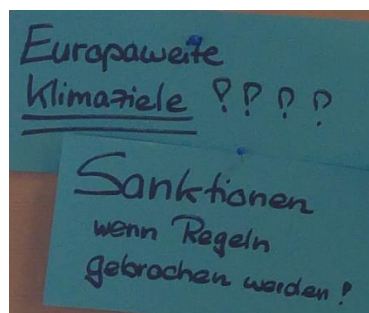 Europaweite
Klimaziele ????
Sanktionen
wenn Regeln
gebrochen werden!